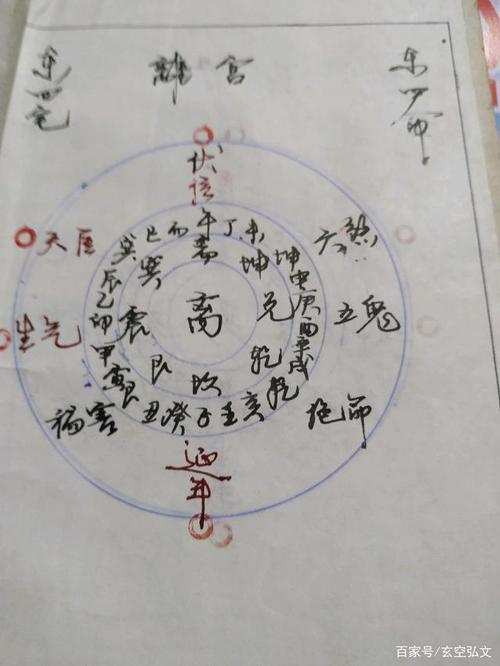 東四宅
離宮
东四命
伏位
天医
生气
祸害
延年
绝命
五鬼
六煞
巳丙午丁未
坤申庚酉辛戌乾
亥壬子癸丑
艮寅甲卯乙辰巽
离
坤
兑
乾
坎
艮
震
巽
离
百家号/玄空弘文